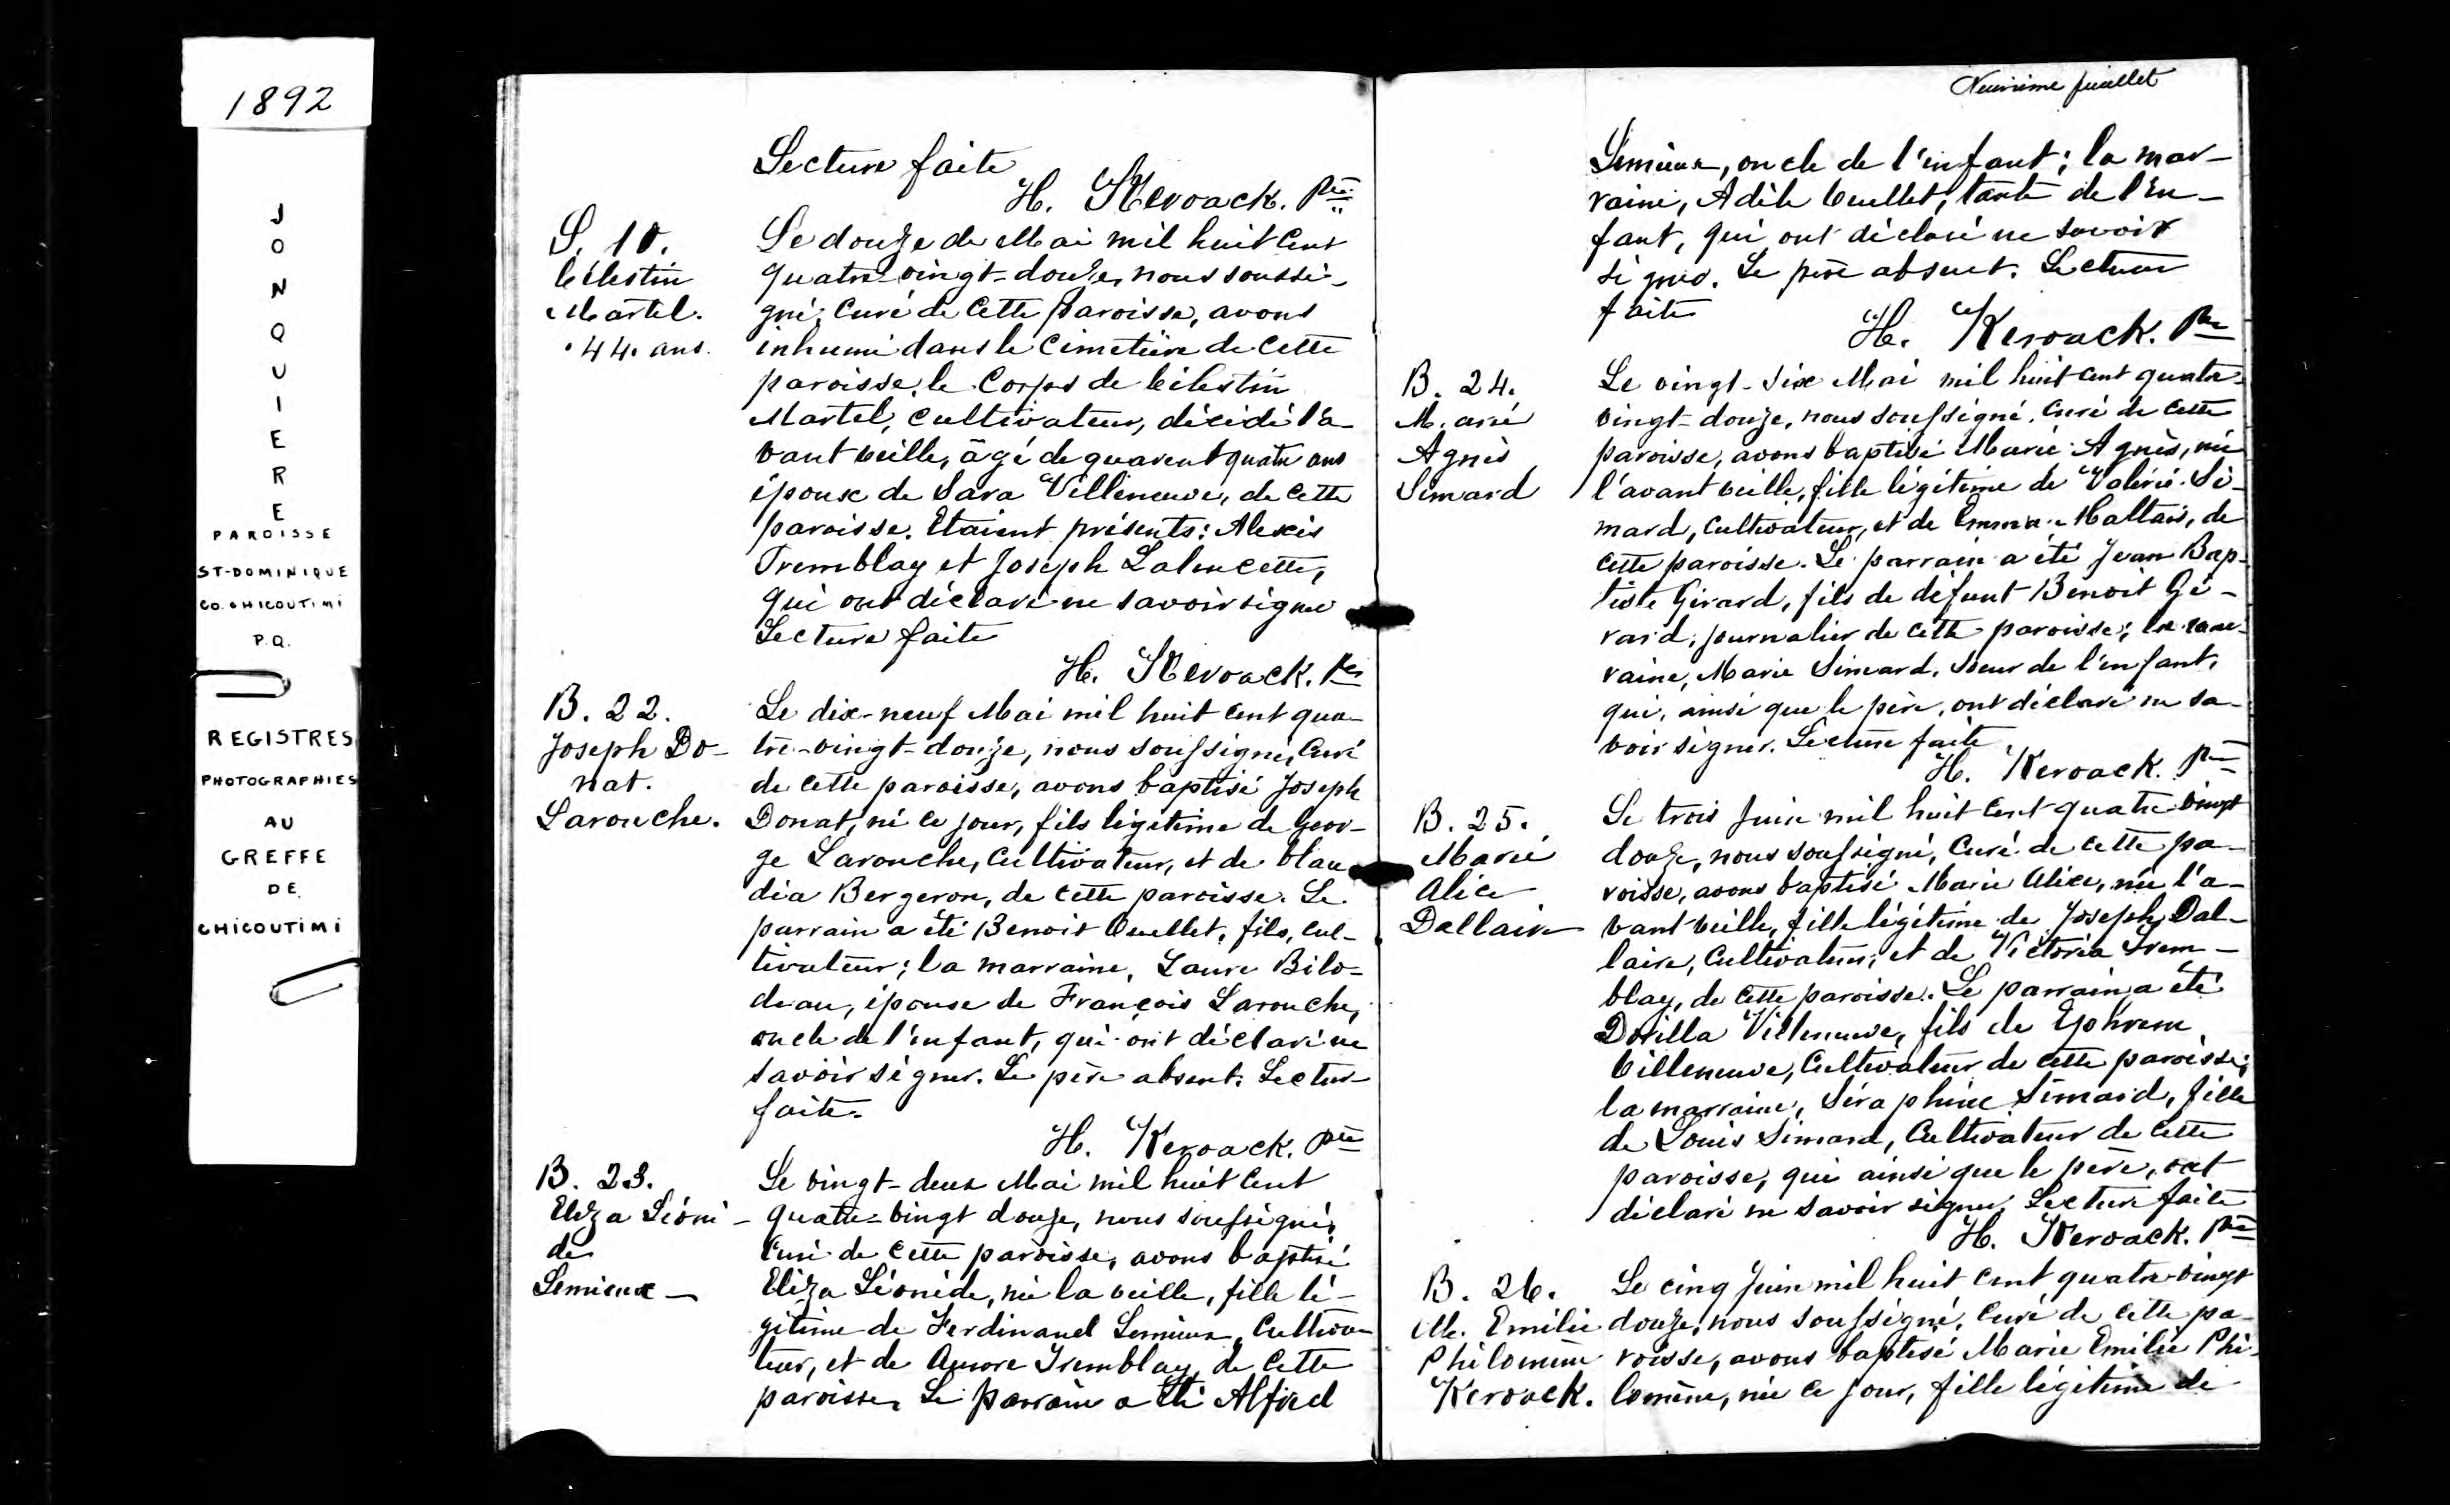 1892
JONQUIERE
PAROISSE
ST-DOMINIQUE
CO. CHICOUTIMI
P.Q.
REGISTRES
PHOTOGRAPHIES
AU
GREFFE
DE
CHICOUTIMI
Lecture faite
H. Kerouack. Ptre
S. 10.
Célestin
Martel.
44. ans.
Le douze de Mai mil huit cent
quatre-vingt-douze, nous soussi-
gné, Curé de cette paroisse, avons
inhumé dans le Cimetière de cette
paroisse, le Corps de Célestin
Martel, Cultivateur, décédé l'a-
vant veille, âgé de quarent quatre ans
époux de Sara Villeneuve, de cette
paroisse. Etaient présents: Alexis
Tremblay et Joseph Lalancette,
qui ont déclaré ne savoir signer
Lecture faite
H. Kerouack. Ptre
B. 22.
Joseph Do-
nat.
Larouche.
Le dix-neuf Mai mil huit cent qua-
tre-vingt-douze, nous soussigné, Curé
de cette paroisse, avons baptisé Joseph
Donat, né ce jour, fils légitime de Geor-
ge Larouche, Cultivateur, et de Clau
dia Bergeron, de cette paroisse. Le
parrain a été Benoit Ouellet, fils, cul-
tivateur; la marraine, Laure Bilo-
deau, épouse de François Larouche,
oncle de l'enfant, qui ont déclaré ne
savoir signer. Le père absent. Lectur
faite.
H. Kerouack. Ptre
B. 23.
Eliza Léoni-
de
Lemieux -
Le vingt-deux Mai mil huit cent
quatre-vingt douze, nous soussigné,
Curé de cette paroisse, avons baptisé
Eliza Léonide, née la veille, fille lé-
gitime de Ferdinand Lemieux, Cultiva-
teur, et de Aurore Tremblay, de cette
paroisse. Le parrain a été Alfred
Neuvième feuillet
Lemieux, oncle de l'enfant; la mar-
raine, Adèle Ouellet, tante de l'en-
fant, qui ont déclaré ne savoir
signer. Le père absent. Lecture
faite
H. Kerouack. Ptre
B. 24.
M. arie
Agnès
Simard
Le vingt-six Mai mil huit cent quatre-
vingt-douze, nous soussigné, Curé de cette
paroisse, avons baptisé Marie Agnès, née
l'avant veille, fille légitime de Valérie Si-
mard, Cultivateur, et de Emma Maltais, de
cette paroisse. Le parrain a été Jean Bap-
tiste Girard, fils de défunt Benoit Gi-
rard, journalier de cette paroisse; la mar-
raine, Marie Simard, soeur de l'enfant,
qui, ainsi que le père, ont déclaré ne sa-
voir signer. Lecture faite.
H. Kerouack. Ptre
B. 25.
Marie
Alice
Dallaire
Le trois Juin mil huit cent quatre vingt
douze, nous soussigné, Curé de cette pa-
roisse, avons baptisé Marie Alice, née l'a-
vant veille, fille légitime de Joseph Dal-
laire, Cultivateur, et de Victoria Trem-
blay, de cette paroisse. Le parrain a été
Dorilla Villeneuve, fils de Ephrem
Villeneuve, Cultivateur de cette paroisse;
la marraine, Séraphine Simard, fille
de Louis Simard, Cultivateur de cette
paroisse, qui ainsi que le père, ont
déclaré ne savoir signer. Lecture faite
H. Kerouack. Ptre
B. 26.
M. Emilie
Philomène
Kerouack.
Le cinq Juin mil huit cent quatre-vingt
douze, nous soussigné, Curé de cette pa-
roisse, avons baptisé Marie Emilie Phi-
lomène, née ce jour, fille légitime de